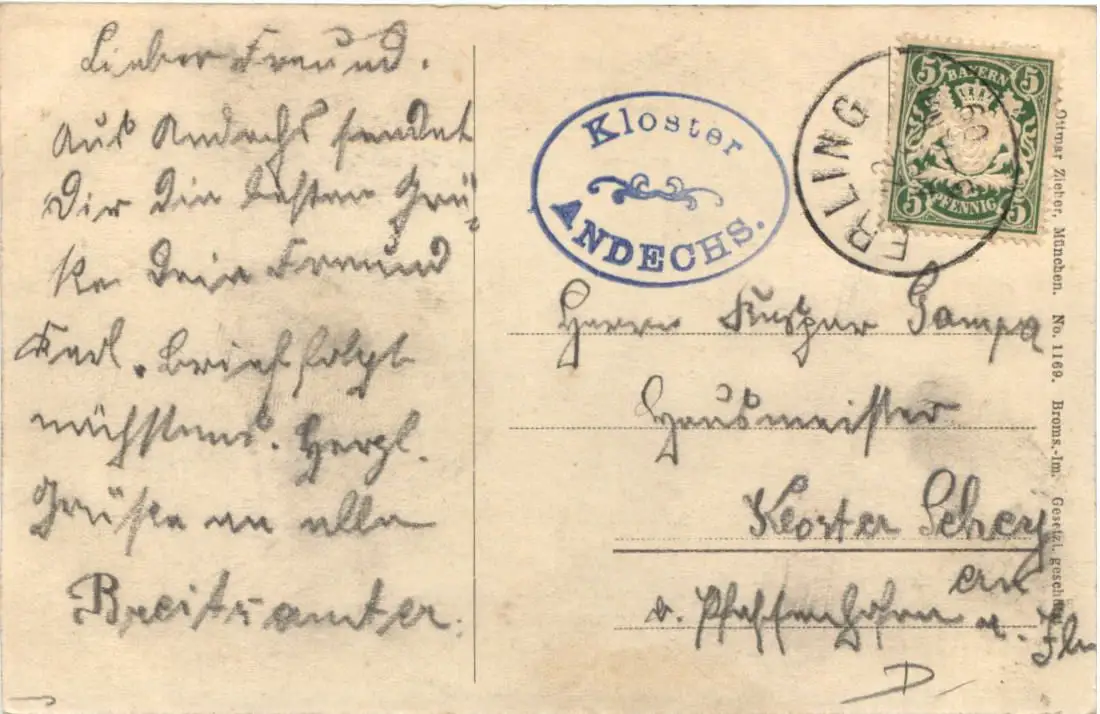 Lieber Freund.
Aus Andechs sendet
Dir die besten Grü-
ße Dein Freund
Karl. Brief folgt
nächstens. Herzl.
Grüße an alle
Breitsamter.
Kloster
ANDECHS.
ERLING
5 BAYERN 5
5 PFENNIG 5
Herrn Kaspar
Hausmeister
Kloster Schey
ern
b. Pfaffenhofen a. Ilm
Ottmar Zieher, München. No. 1169. Broms.-Im. Gesetzl. gesch